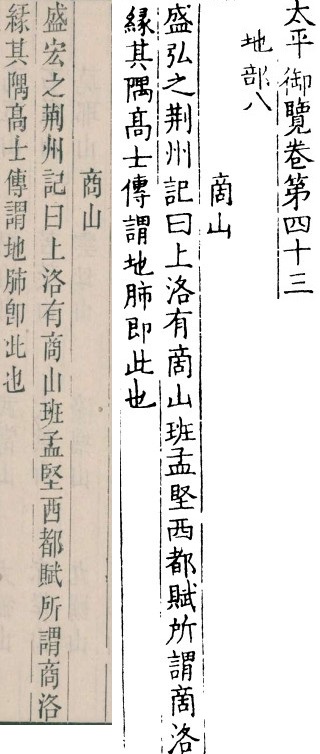 太平御覽卷第四十三
地部八
商山
盛弘之荆州記曰上洛有商山班孟堅西都賦所謂商洛
緣其隅髙士傳謂地肺即此也
商山
盛宏之荆州記曰上洛有商山班孟堅西都賦所謂商洛
緣其隅髙士傳謂地肺卽此也